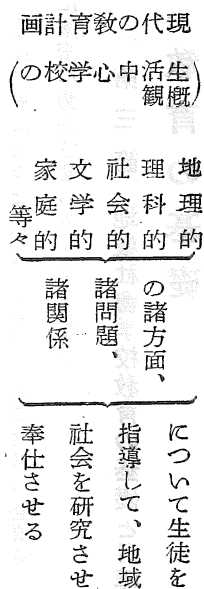 現代の教育計画
(生活中心学校の概観)
地理的
理科的
社会的
文学的
家庭的
等々
の諸方面、
諸問題、
諸関係
について生徒を
指導して、地域
社会を研究させ
奉仕させる